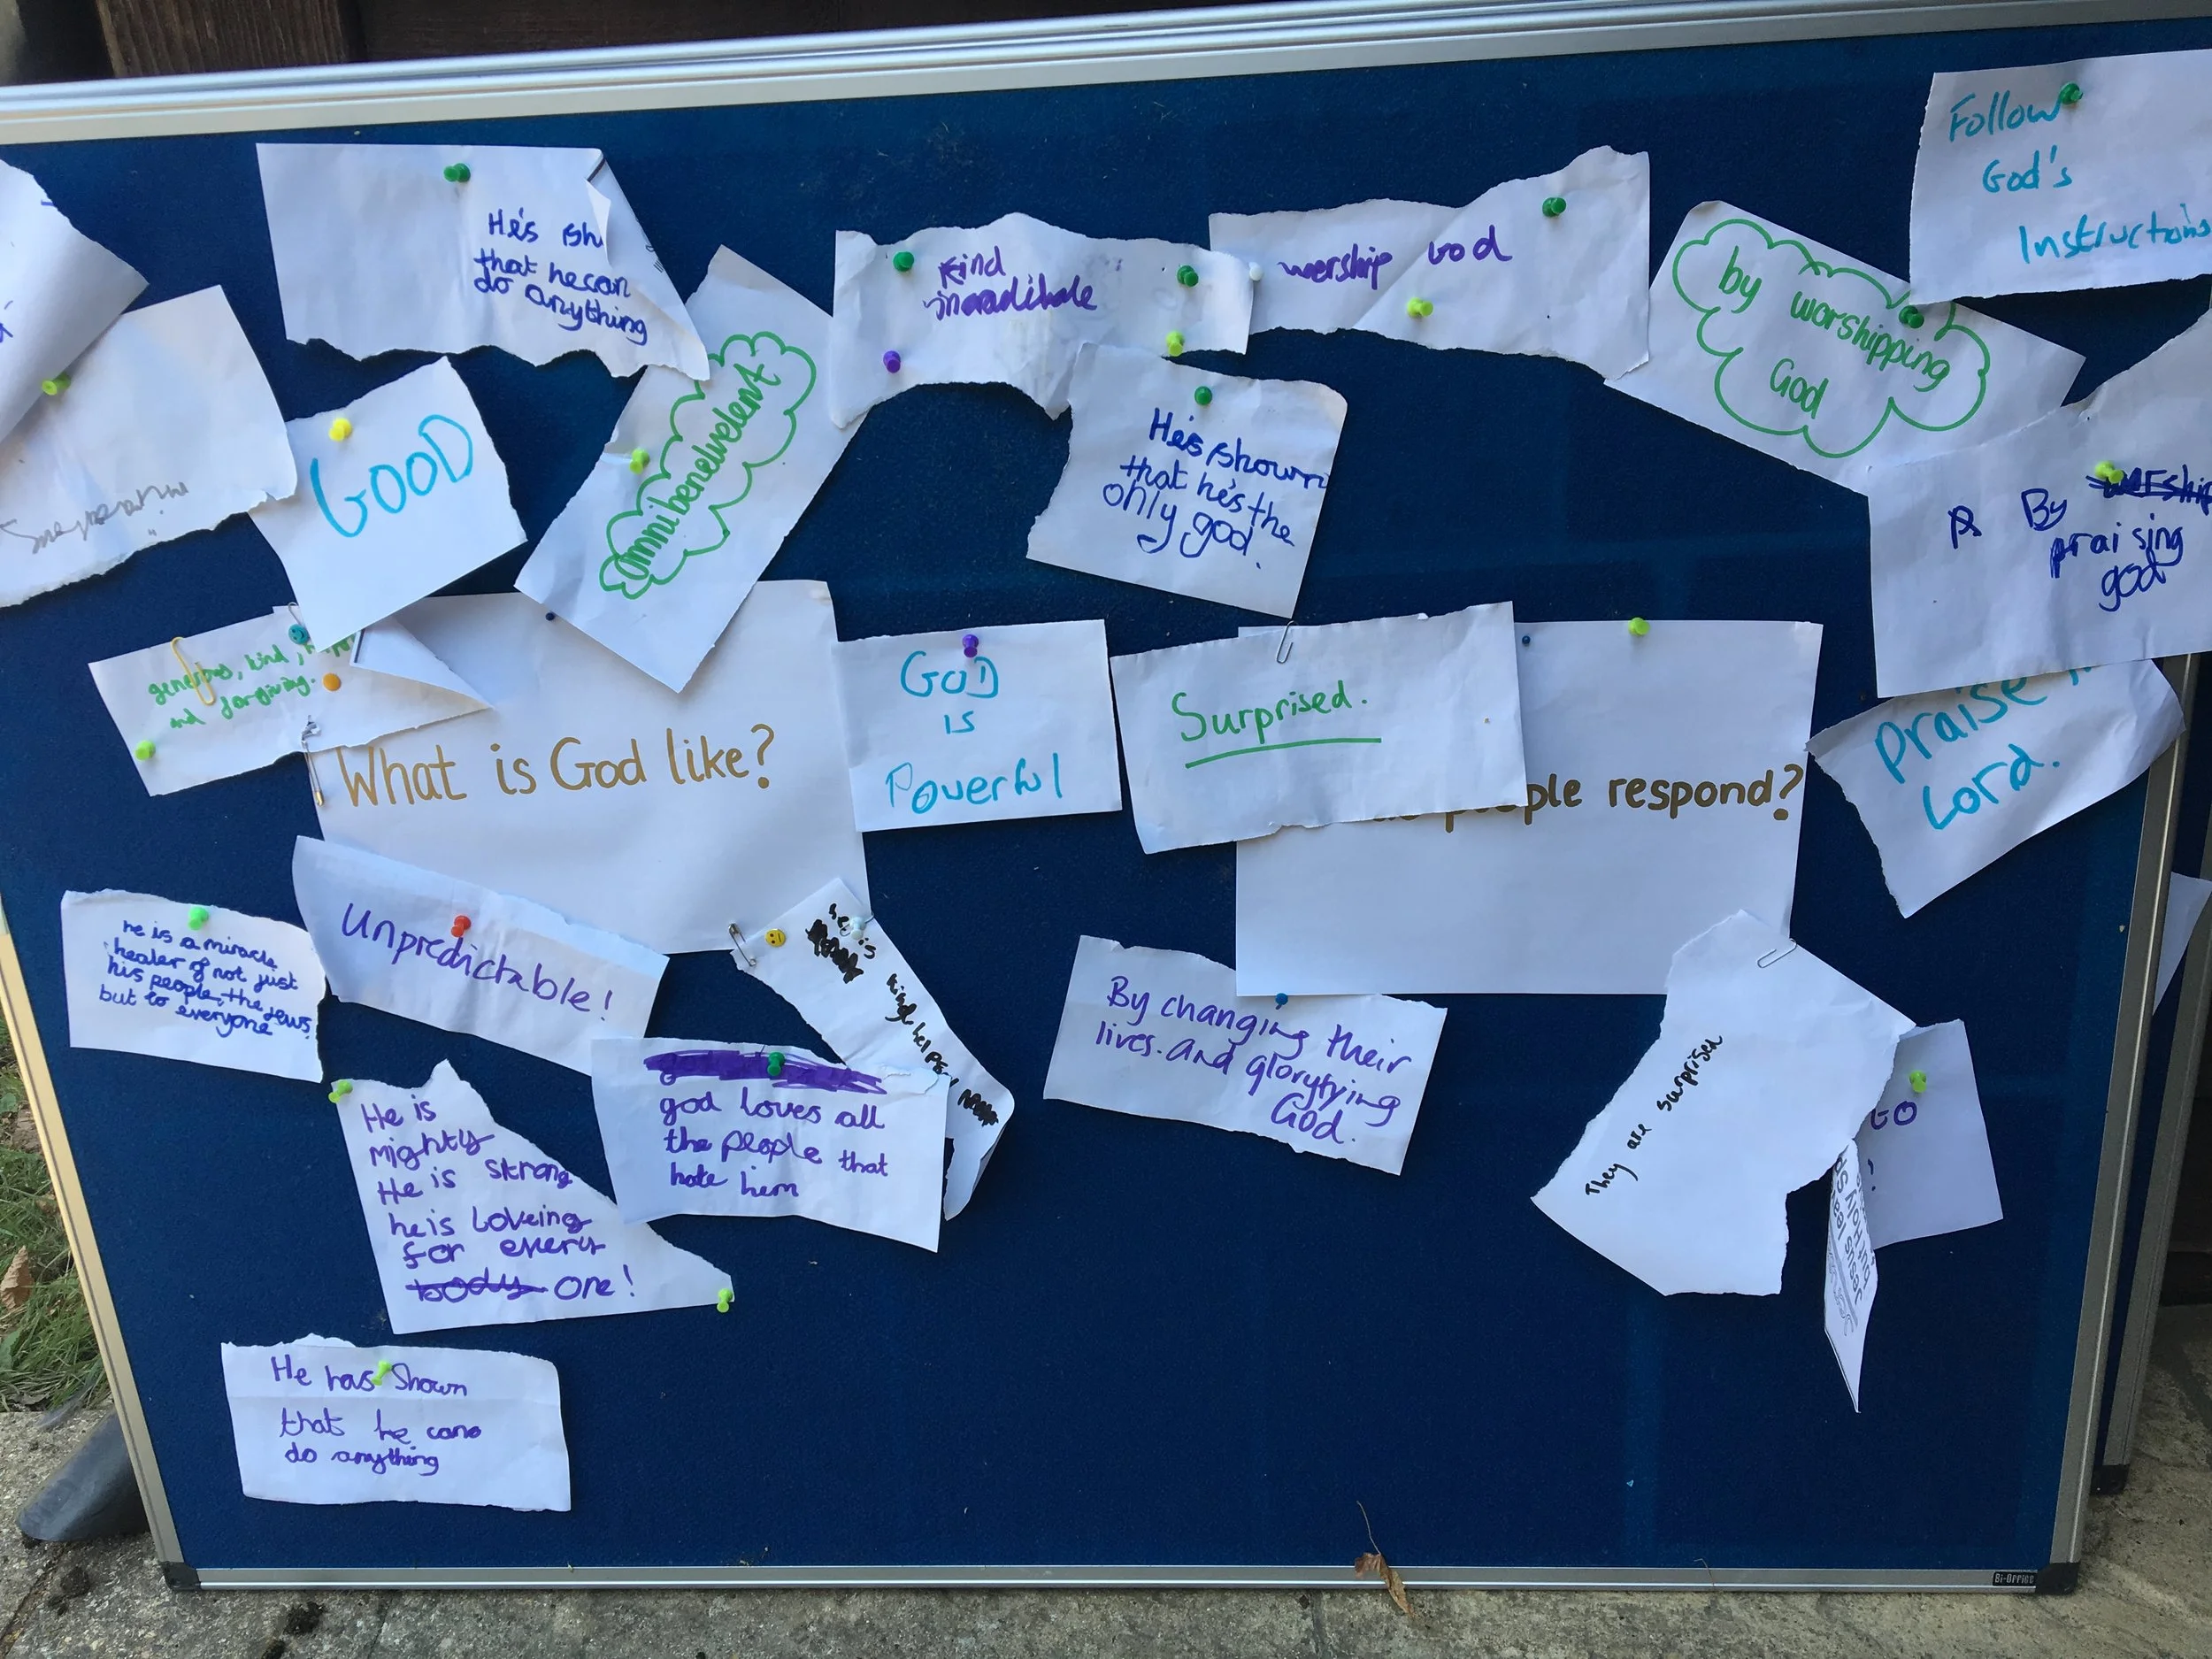 He's sh
that he can
do anything
Kind
worship God
by worshipping
God
Follow
God's
Instructions
GOOD
Omnibenelvelent
He's shown
that he's the
only god.
R By worship
praising
god
generous, kind,
and forgiving.
What is God like?
GOD
is
Powerful
Surprised.
people respond?
Praise
Lord.
he is a miracle
healer of not just
his people, the Jews
but to everyone
Unpredictable!
he is
kind helper
By changing their
lives. and gloryfying
God.
They are surprised
GO
!
Jesus leaves
but Holy Sp
god loves all
the people that
hate him
He is
mighty
He is strong
he is loveing
for every
body one!
He has shown
that he cans
do anything
Bi-Office